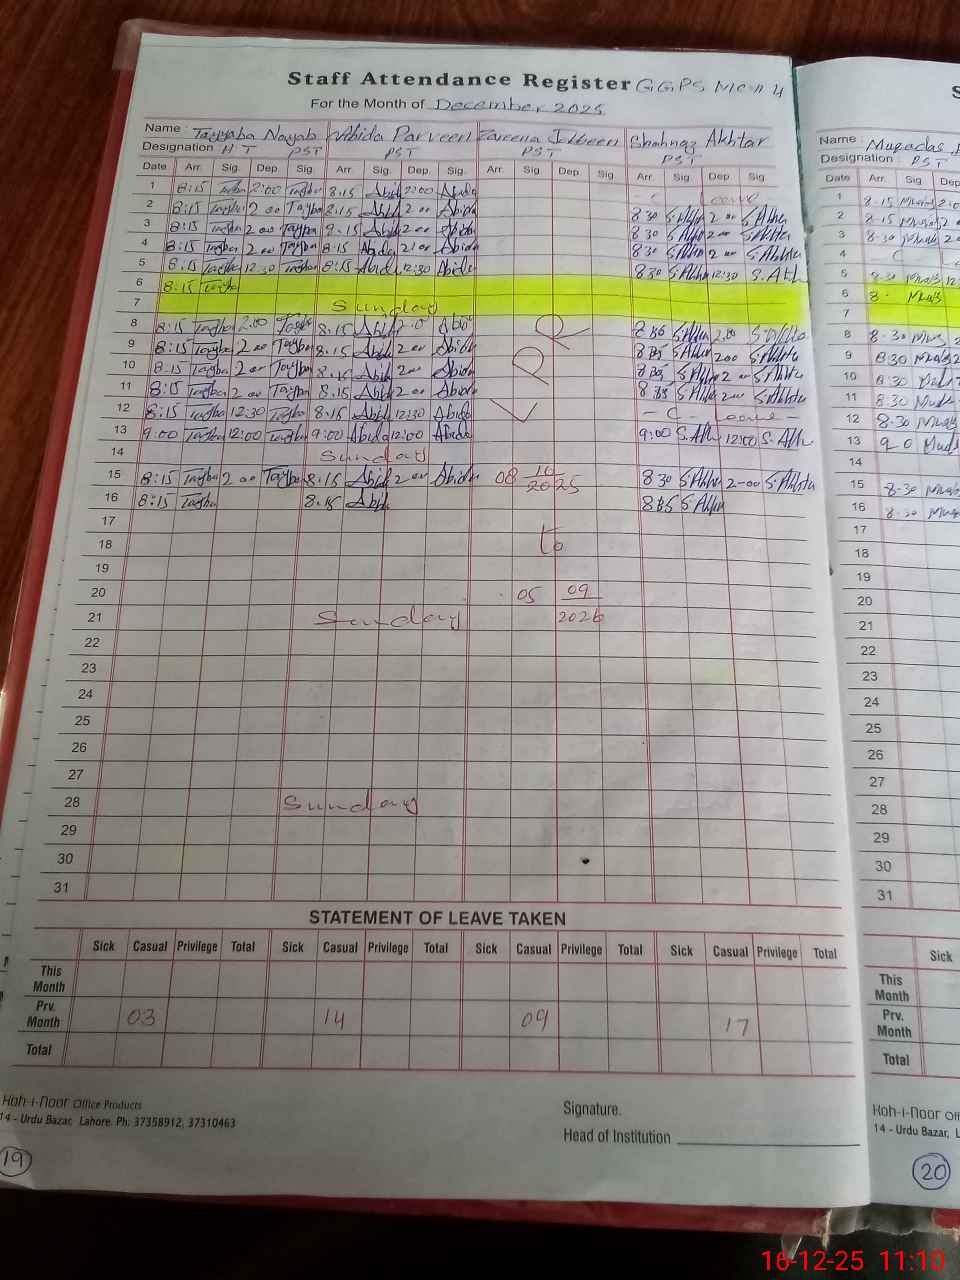 Staff Attendance Register GGPS MC # 4
For the Month of December 2025
Name : Tayyaba Nayab Abida Parveen Zareena Jabeen Shahnaz Akhtar
Designation HT PST PST PST PST
Date Arr. Sig. Dep. Sig. Arr. Sig. Dep. Sig. Arr. Sig. Dep. Sig. Arr. Sig. Dep. Sig.
1 8:15 Tayba 2:00 Tayba 8.15 Abid 2:00 Abida - C - Leave
2 8:15 Tayba 2 00 Tayba 8.15 Abid 2 00 Abida 8 30 S.Akhter 2 00 S.Akhter
3 8:15 Tayba 2 00 Tayba 8.15 Abid 2 00 Abida 8 30 S.Akhter 2 00 S.Akhter
4 8:15 Tayba 2 00 Tayba 8:15 Abida 2 00 Abida 8 30 S.Akhter 2 00 S.Akhter
5 8:15 Tayba 12:30 Tayba 8:15 Abida 12:30 Abida 8 30 S.Akhter 12:30 S.Akh
6 8:15 Tayba
7 Sunday
8 8:15 Tayba 2:00 Tayba 8.15 Abid 2.0 Abid S.Akhter 2.00 S.Akhter
9 8:15 Tayba 2 00 Tayba 8.15 Abid 2 00 Abida S.Akhter 2 00 S.Akhter
10 8:15 Tayba 2 00 Tayba 8.15 Abid 2 00 Abida S.Akhter 2 00 S.Akhter
11 8:15 Tayba 2 00 Tayba 8.15 Abid 2 00 Abida S.Akhter 2 00 S.Akhter
12 8:15 Tayba 12:30 Tayba 8.15 Abid 12:30 Abida - C - Leave -
13 9:00 Tayba 12:00 Tayba 9:00 Abida 12:00 Abida 9:00 S.Akh 12:00 S.Akh
14 Sunday
LPR
15 8:15 Tayba 2 00 Tayba 8.15 Abid 2 00 Abida 08 10/2025 8 30 S.Akhter 2-00 S.Akhter
16 8:15 Tayba 8.15 Abid S.Akhter
17
18 to
19
20 05 09
21 Sunday 2026
22
23
24
25
26
27
28 Sunday
29
30
31
STATEMENT OF LEAVE TAKEN
Sick Casual Privilege Total Sick Casual Privilege Total Sick Casual Privilege Total Sick Casual Privilege Total
This Month
Prv. Month 03 14 09 17
Total
Koh-i-Noor Office Products
14 - Urdu Bazar, Lahore. Ph: 37358912, 37310463
Signature.
Head of Institution
19
S
Name : Muqadas
Designation : PST
Date Arr. Sig. Dep
1 8.15
2 8.15
3 8-30
4 - C
5 8.30
6 8.
7
8 8-30
9 8.30
10 8:30
11 8.30
12 8.30
13 9.0
14
15 8-30
16 8-30
17
18
19
20
21
22
23
24
25
26
27
28
29
30
31
Sick
This Month
Prv. Month
Total
Koh-i-Noor Off
14 - Urdu Bazar, L
20
16-12-25 11:10